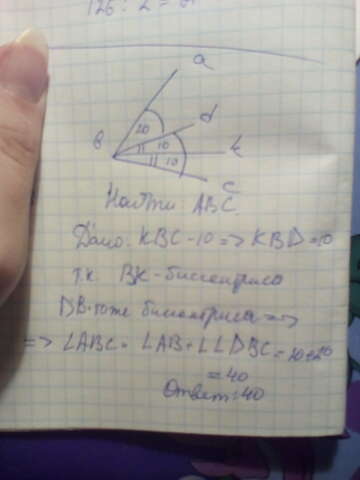 125 : 2 =
a
d
в
20
10
10
k
c
Найти ABC
Дано: KBC-10 => KBD=10
т.к. BK-биссектриса
DB-тоже биссектриса =>
=> ∠ABC = ∠AB+∠∠DBC=20+20
=40
Ответ:40